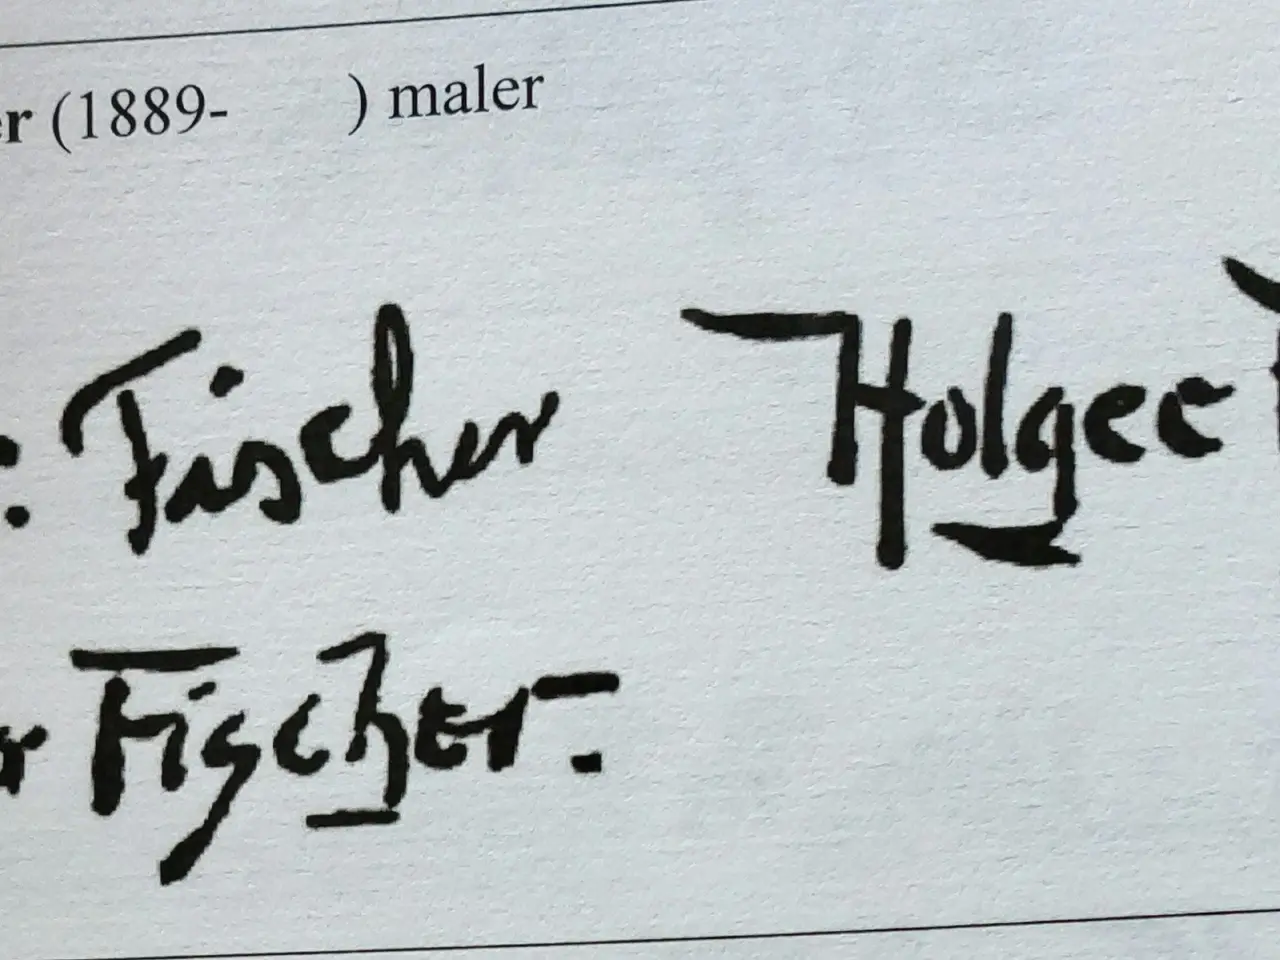 er (1889-        ) maler
: Fischer   Holger
r Fischer.